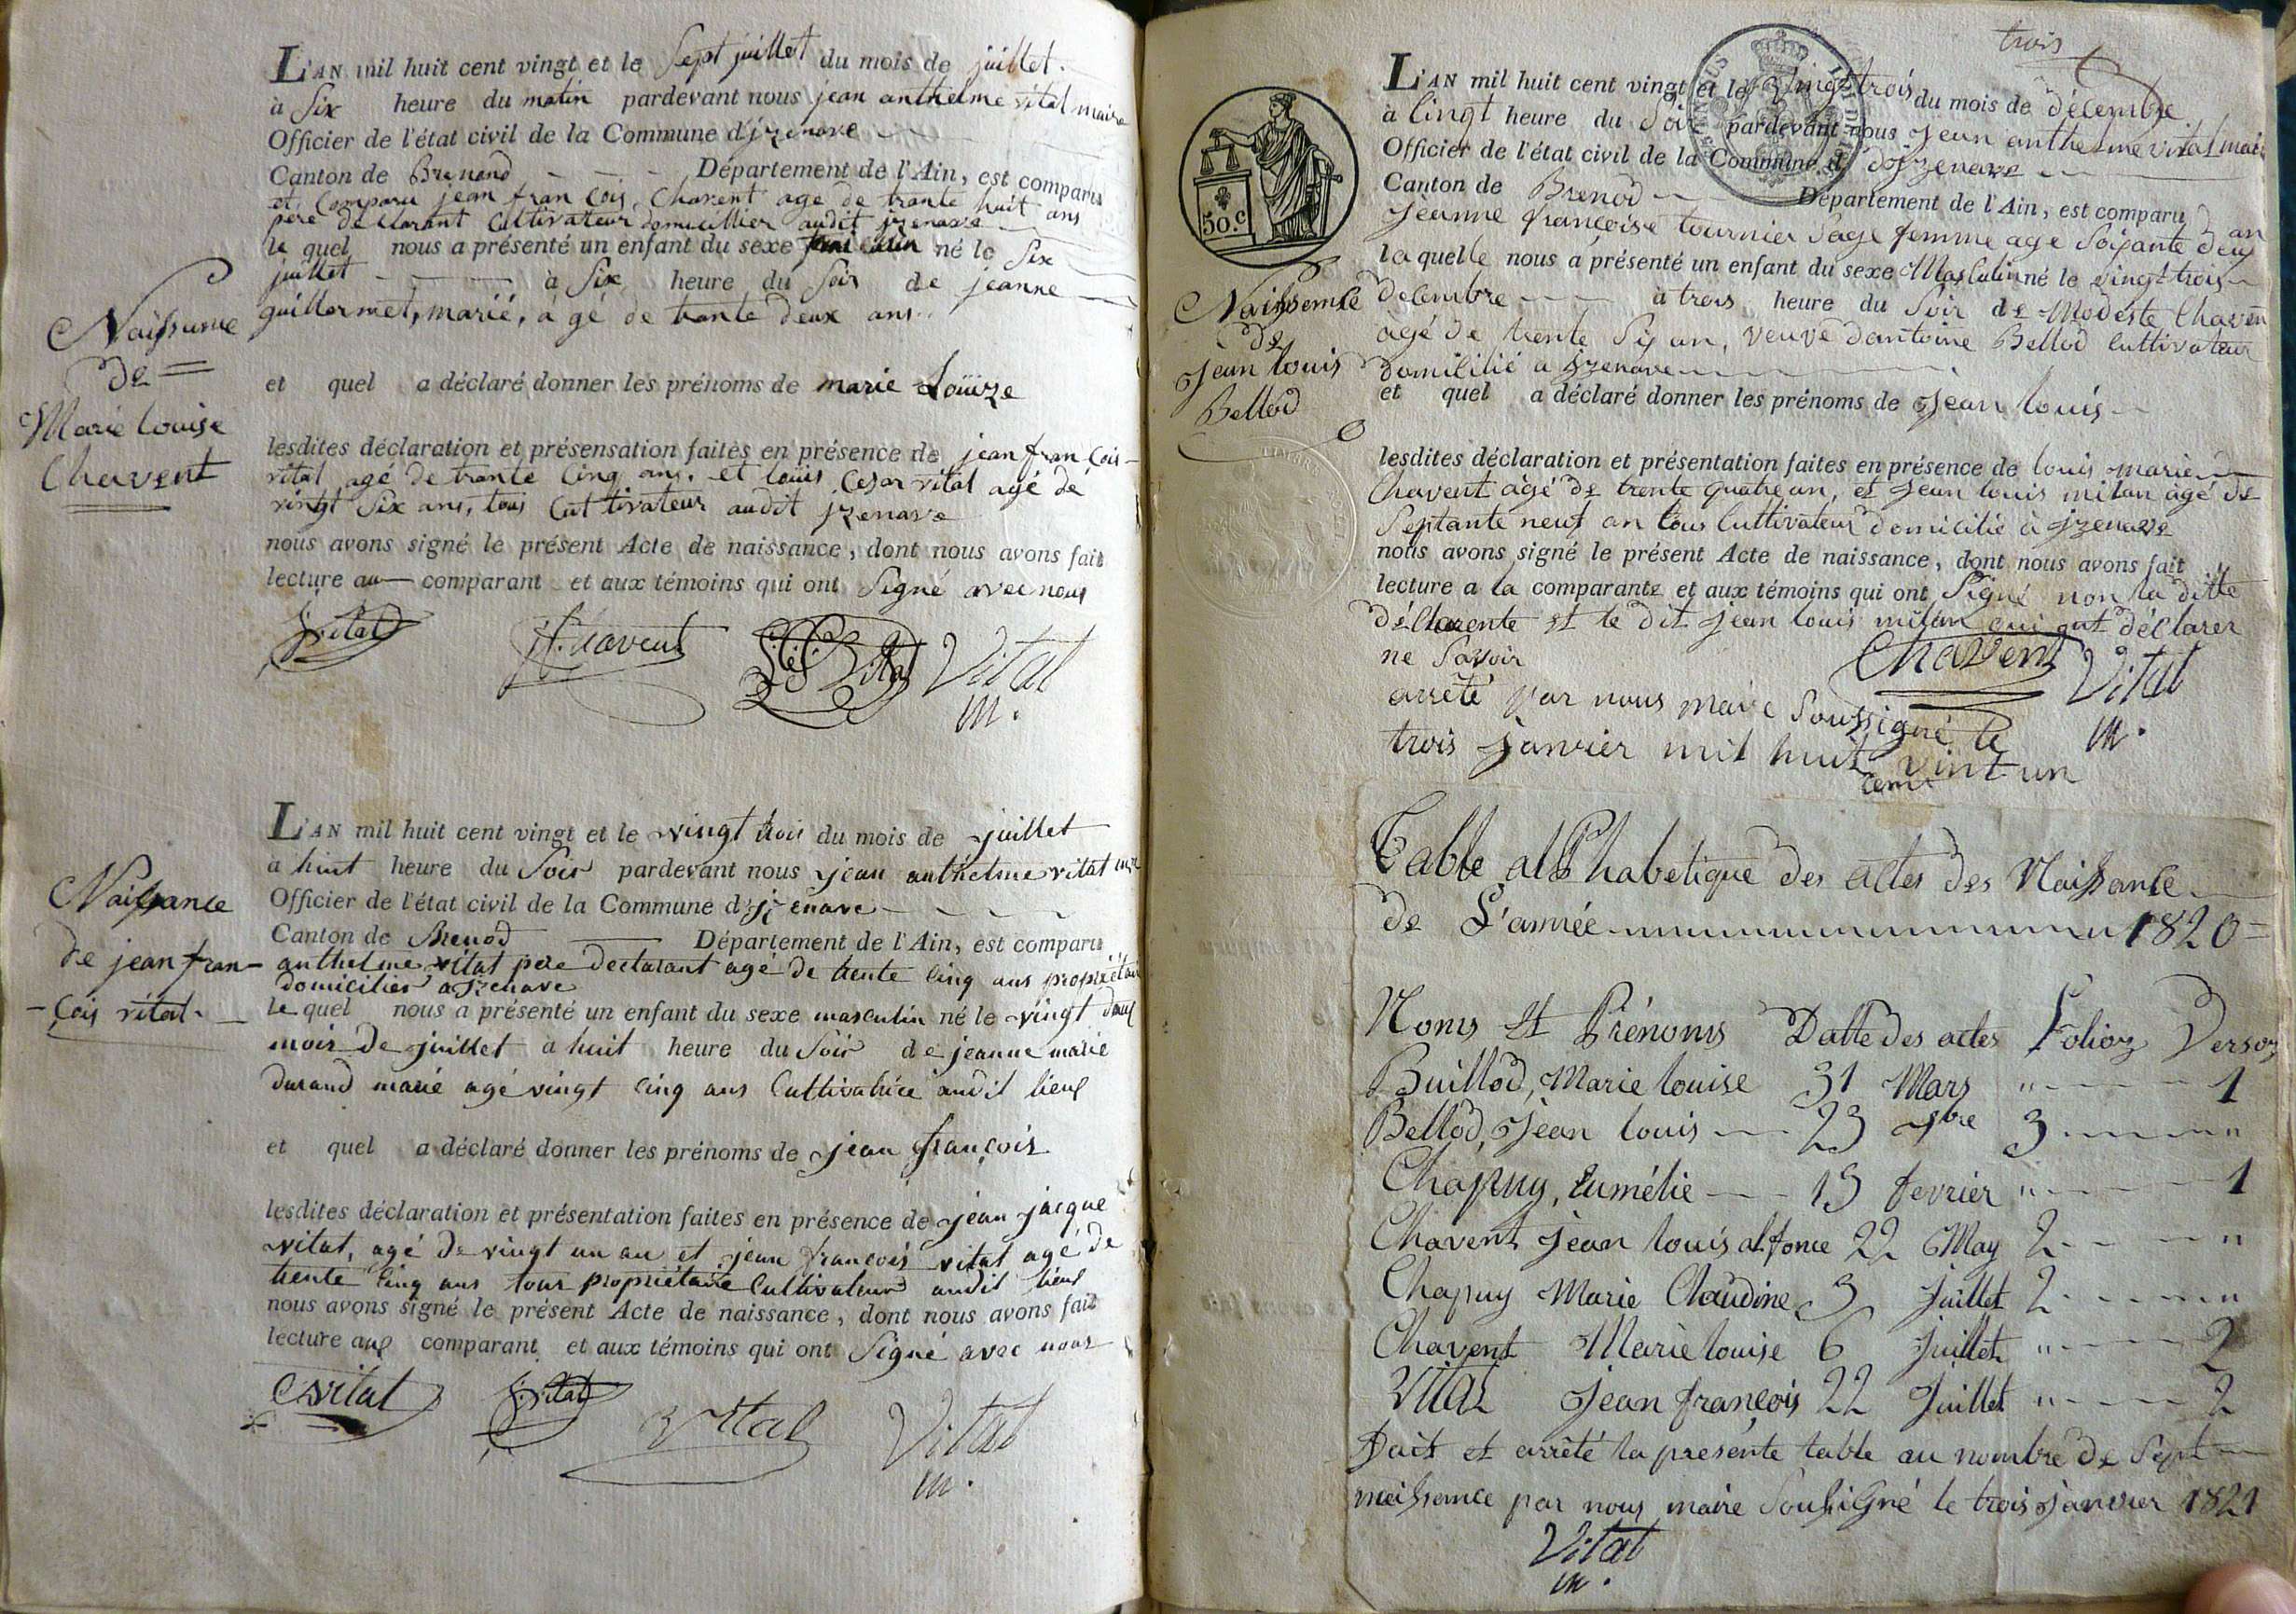 L'AN mil huit cent vingt et le Sept juillet du mois de juillet
à Six heure du matin pardevant nous jean anthelme vital maire
Officier de l'état civil de la Commune d'jzenave
Canton de Brenond Département de l'Ain, est comparu
et Comparu jean fran Cois Chavent age de trante huit ans
père declarant Cultivateur domicillier audit jzenave
le quel nous a présenté un enfant du sexe né le Six
juillet à Six heure du Soir de jeanne
guillermet, marié, à gé de trante deux ans
Naissance
de
Marie louise
Chavent
et quel a déclaré donner les prénoms de marie Loüize
lesdites déclaration et présensation faites en présence de jean fran Cois
vital agé de trante Cinq ans, et loüis Cesar vital agé dé
vingt Six ans, tous Cultivateur audit jzenave
nous avons signé le présent Acte de naissance, dont nous avons fait
lecture au comparant et aux témoins qui ont Signé avec nous
Jvital Chavent Vital Vital
m.
L'AN mil huit cent vingt et le vingt trois du mois de juillet
a huit heure du Soir pardevant nous jean anthelme vital
Officier de l'état civil de la Commune d'jzenave
Canton de Brenod Département de l'Ain, est comparu
anthelme vital pere declarant agé de trente cinq ans propriétair
domicilier a jzenave
le quel nous a présenté un enfant du sexe masculin né le vingt deux
mois de juillet à huit heure du Soir de jeanne marie
durand marié agé vingt cinq ans Cultivatrice audit lieux
Naissance
de jean fran-
-çois vital.
et quel a déclaré donner les prénoms de jean françois
lesdites déclaration et présentation faites en présence de jean jacque
vital, agé de vingt un an et jean françois vital agé de
trente cinq ans tous propriétaire Cultivateur audit lieux
nous avons signé le présent Acte de naissance, dont nous avons fait
lecture aux comparant et aux témoins qui ont Signé avec nous
vital Jvital vital Vital
m.
trois
L'AN mil huit cent vingt et le Vingt trois du mois de décembre
à Cinq heure du Soir pardevant nous Jean anthelme vital mair
Officier de l'état civil de la Commune d' dojzenave
Canton de Brenod Département de l'Ain, est comparu
Jeanne françoise tournier Sage femme age Soixante deux an
la quelle nous a présenté un enfant du sexe Masculin né le vingt trois
decembre à trois heure du Soir de Modeste Chaven
agé de trente Six an, veuve dantoine Bellod Cultivateur
domicilié a jzenave
50.c
Naissence
de
Jean louis
Bellod
et quel a déclaré donner les prénoms de Jean louis
lesdites déclaration et présentation faites en présence de louis marie
Chavent âgé de trente quatre an, et Jean louis milan âgé de
Septante neuf an tous Cultivateur domicilié à jzenave
nous avons signé le présent Acte de naissance, dont nous avons fait
lecture a la comparante et aux témoins qui ont Signé non la ditte
déclarente et le dit Jean louis milan qui ont déclarer
ne Savoir Chavent Vital
m.
arreté par nous maire Soussigné le
trois Janvier mil huit cent vint un
Table alphabetique des actes des Naissance
de L'année 1820
Noms et Prénoms Datte des actes Folioz Versoz
Buillod, Marie louise 31 Mars " 1
Bellod, Jean louis 23 xbre 3 "
Chapuy, Eumélie 15 fevrier " 1
Chavent Jean louis alfonce 22 May 2 "
Chapuy Marie Claudine 3 Juillet 2 "
Chavent Marie louise 6 Juillet " 2
Vital Jean françois 22 Juillet " 2
Fait et arrêté la presente table au nombre de Sept
naissance par nous maire Soussigné le trois janvier 1821
Vital
m.